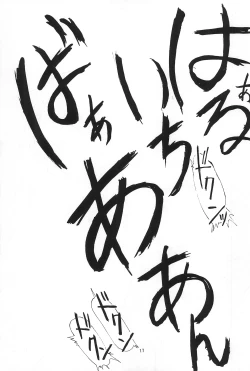 はぁる
いち
ばぁ
ああん
ドクンッ
ドクン
ドクン